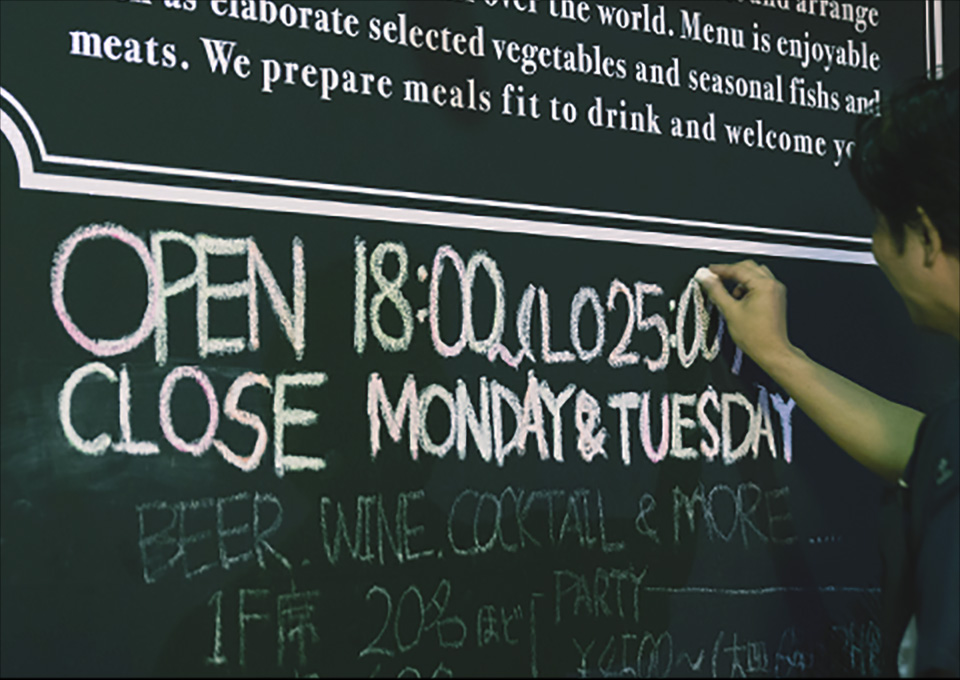 and arrange
as elaborate over the world. Menu is enjoyable
meats. selected vegetables and seasonal fishs and
We prepare meals fit to drink and welcome
OPEN 18:00~(LO25:00)
CLOSE MONDAY&TUESDAY
BEER. WINE. COCKTAIL & MORE.....
1F席 20名ほど PARTY
¥4500~